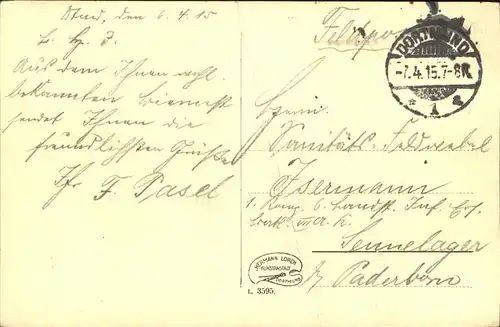 Dtmd, den 6.4.15
L. H. J.
Aus dem Ihnen wohl
bekannten
sendet Ihnen die
freundlichsten Grüße
Ihr F. Pasel
Feldpost
DORTMUND
-7.4.15.7-8V.
* 1 e
Herrn
Sanitäts-Feldwebel
Isermann
1. Komp. 6. Landst. Inf. Ers.
Batl. VII A. K.
Sennelager
b/ Paderborn
HERMANN LORCH
KUNSTANSTALT
DORTMUND
L. 3595.